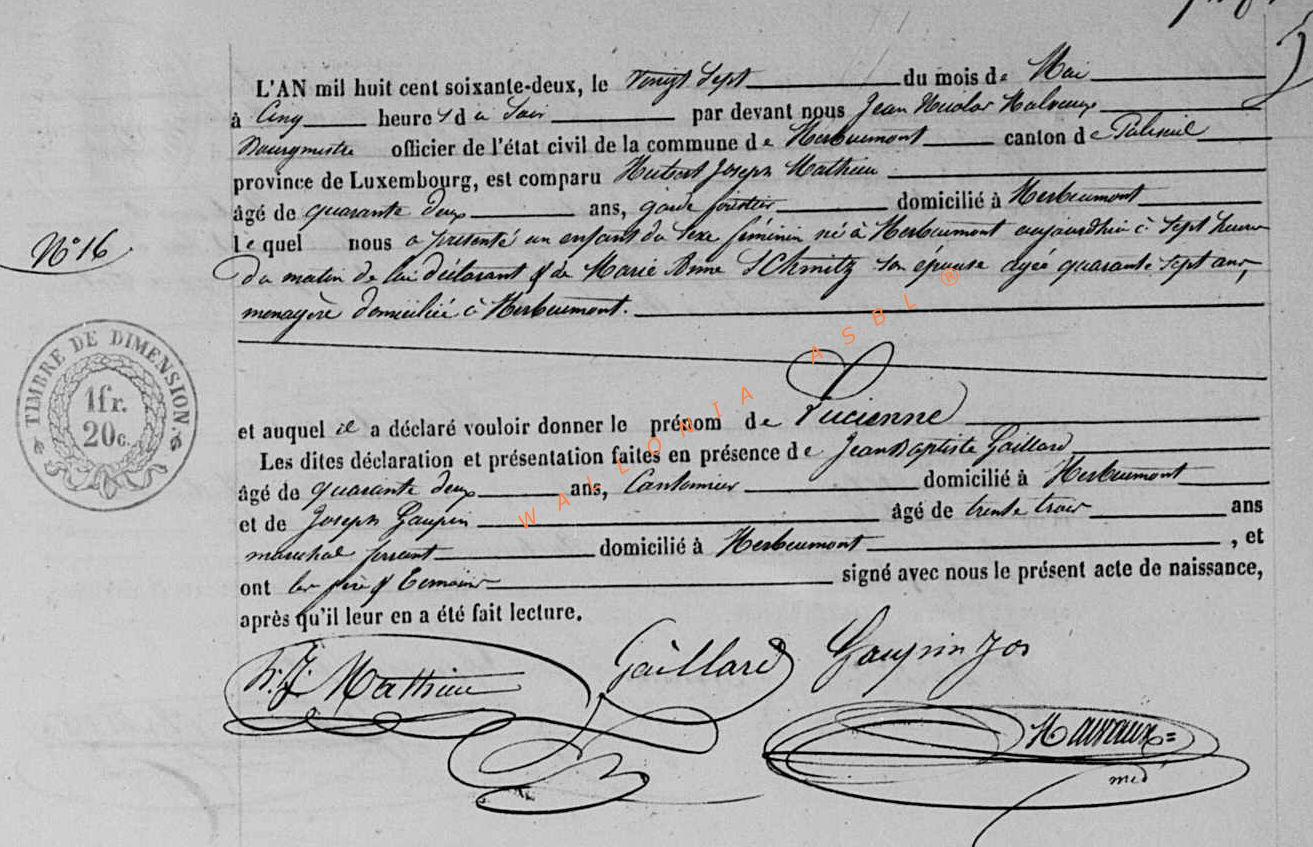 L'AN mil huit cent soixante-deux, le vingt Sept du mois de Mai
à Cinq heures du Soir par devant nous Jean Nicolas
Bourgmestre officier de l'état civil de la commune de Herbeumont canton de Paliseul
province de Luxembourg, est comparu Hubert Joseph Mathieu
âgé de quarante deux ans, garde forestier domicilié à Herbeumont
lequel nous a présenté un enfant du Sexe féminin né à Herbeumont aujourdhui à Sept heures
N° 16
du matin de lui déclarant & de Marie Anne Schmitz son épouse agée quarante Sept ans,
menagère domiciliée à Herbeumont.
TIMBRE DE DIMENSION.
1fr.
20c.
et auquel il a déclaré vouloir donner le prénom de Lucienne
Les dites déclaration et présentation faites en présence de Jean Baptiste Gaillard
âgé de quarante deux ans, Cantonnier domicilié à Herbeumont
et de Joseph Gaupin âgé de trente trois ans
maréchal ferrant domicilié à Herbeumont, et
ont les père & témoins signé avec nous le présent acte de naissance,
après qu'il leur en a été fait lecture.
h. J. Mathieu Gaillard Gaupin Jos
med
WALLONIA ASBL ®